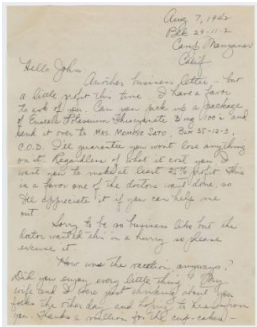 Aug 7, 1942
Blk 29-11-2
Camp Manzanar
Calif
Hello John,
Another business letter, - but
a little profit this time. I have a favor
to ask of you. Can you pick up a package
of Potassium Thiocyanate 100's and
send it over to Mrs. Sato, 35-12-3,
C.O.D. I'll guarantee you wont lose anything
on it. Regardless of what it cost you I
want you to make at least 25% profit. This
is a favor one of the doctors want done, so
I'll appreciate it if you can help me
out.
Sorry to be so business like but the
doctor wanted this in a hurry so please
excuse it.
How was the vacation anyways?
Did you enjoy every little thing? My
wife and I were just thinking about you
folks the other day - and hoping to hear from
you. Thanks a million for the cup-cakes! -